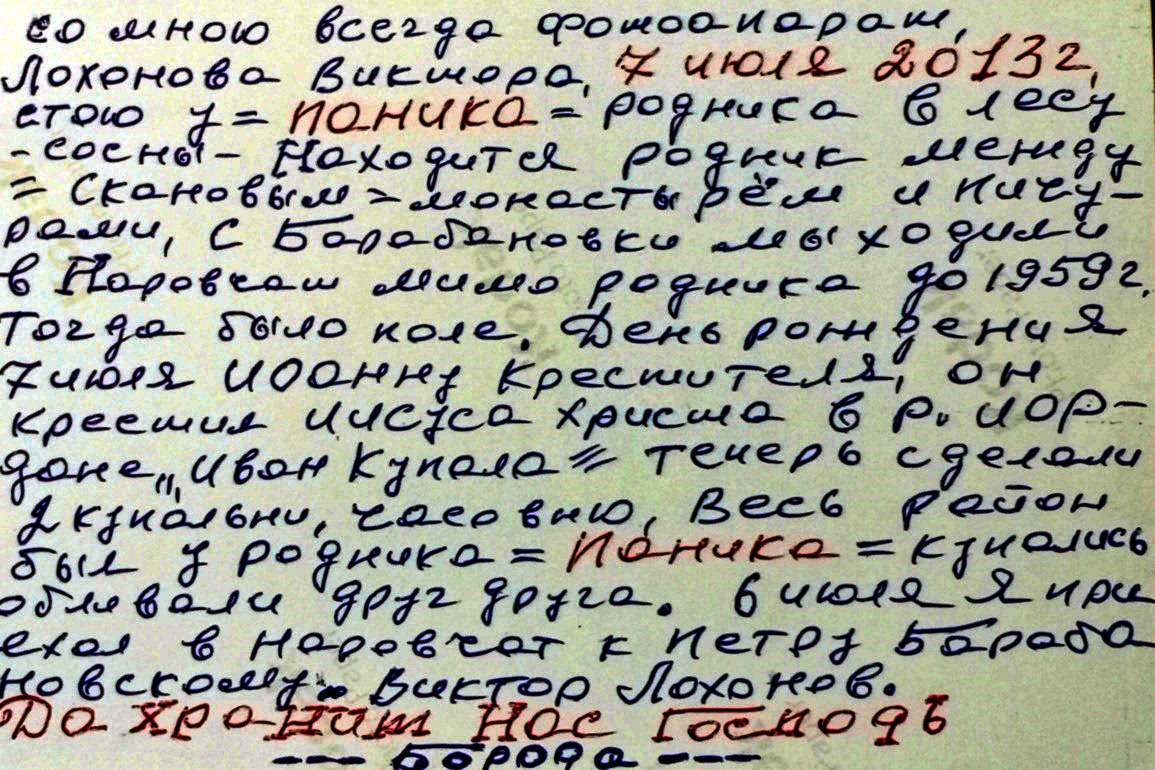 со мною всегда фотоапарат,
Лохонова Виктора, 7 июля 2013г,
стою у = паника = родника в лесу
- сосны - Находится родник между
= Скановым = монастырём и Пичу-
рами, с Барабановки мы ходили
в Наровчат мимо родника до 1959г.
Тогда было поле. День рождения
7 июля Иоанну Крестителя, он
крестил Иисуса Христа в р. Иор-
дане,,, Иван Купала = теперь сделали
2 купальни, часовню, Весь район
был у родника = Паника = купались
обливали друг друга. 6 июля я при
ехал в Наровчат к Петру Бараба
новскому. Виктор Лохонов.
Да Хранит Нас Господь
--- Борода ---